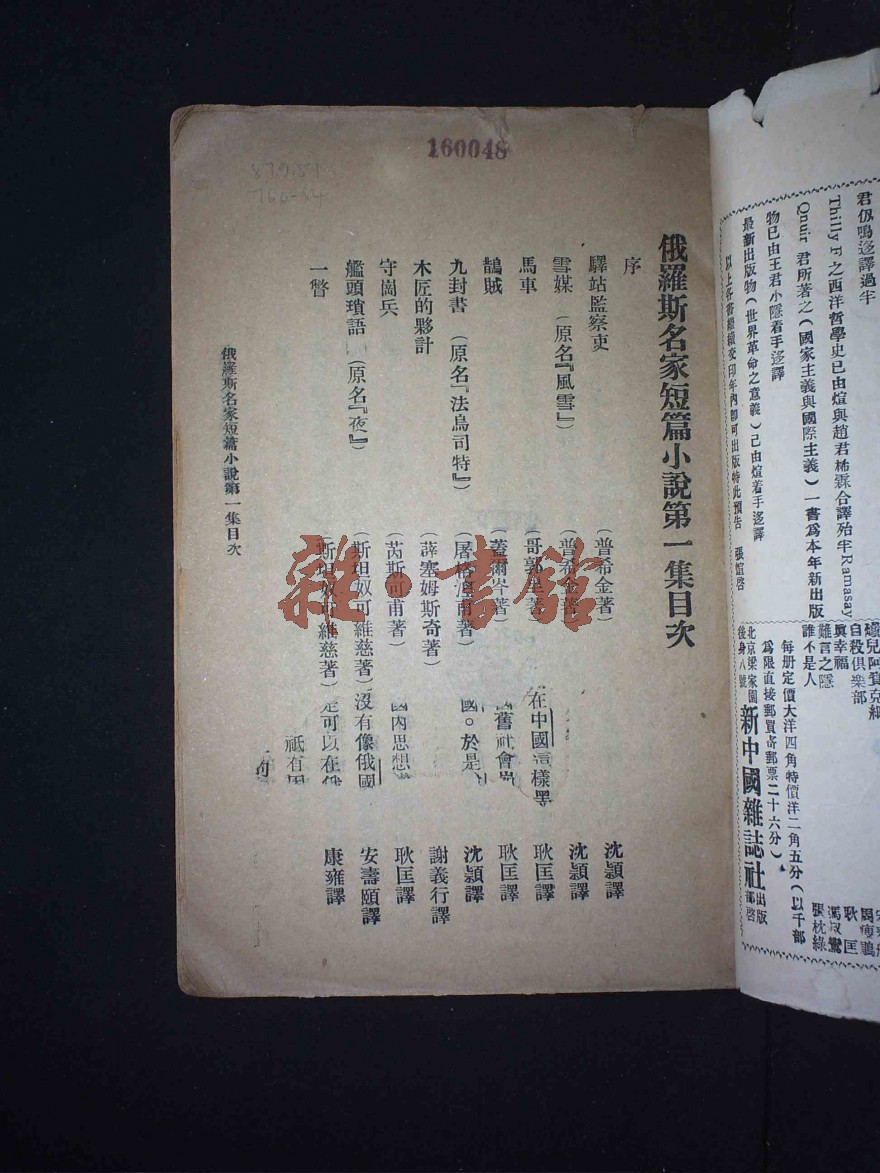 君伋鳴迻譯過半
Thilly F 之西洋哲學史已由煊與趙君柿霖合譯殆半Ramasay
Qmuir 君所著之(國家主義與國際主義)一書爲本年新出版
物已由王君小隱着手迻譯
最新出版物(世界革命之意義)已由煊着手迻譯
以上各書繼續交印年內卽可出版特此預告 張煊啓
自殺俱樂部 周瘦鵑
眞幸福 耿 匡
難言之隱
誰不是人 張枕綠
每册定價大洋四角特價洋二角五分(以千部
爲限直接郵買寄郵票二十六分)
北京梁家園後身八號 新中國雜誌社出版部啓
160048
俄羅斯名家短篇小說第一集目次
序
驛站監察吏 (普希金著) 沈穎譯
雪媒 (原名『風雪』) (普希金著) 沈穎譯
馬車 (哥郭里著) 耿匡譯
鵲賊 (蓋爾岑著) 耿匡譯
九封書 (原名『法烏司特』) (屠格涅甫著) 沈穎譯
木匠的夥計 (薛塞姆斯奇著) 謝義行譯
守崗兵 (芮斯可甫著) 耿匡譯
艦頭瑣語 (原名『夜』) (斯坦奴可維慈著) 安壽頤譯
一瞥 (斯坦奴可維慈著) 康雍譯
在中國這樣黑
國舊社會
國。於是
國內思想
沒有像俄國
是可以在
祇有因
俄羅斯名家短篇小說第一集目次
雜·書館